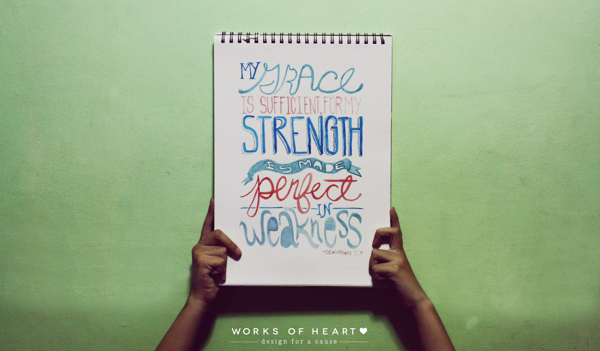 MY GRACE
IS SUFFICIENT, FOR MY
STRENGTH
IS MADE
perfect
IN
WEAKNESS
WORKS OF HEART
design for a cause